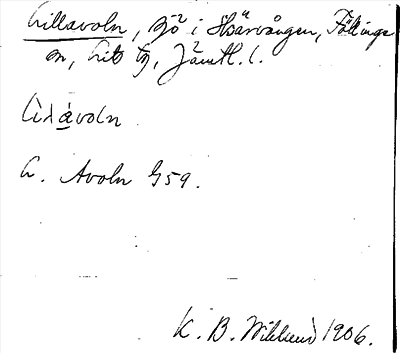 Lillavoln, sjö i Skärvången, Föllinge
sn, Lits tg, Jämtl. l.
lìlávoln
L. Avoln G59.
K. B. Wiklund 1906.